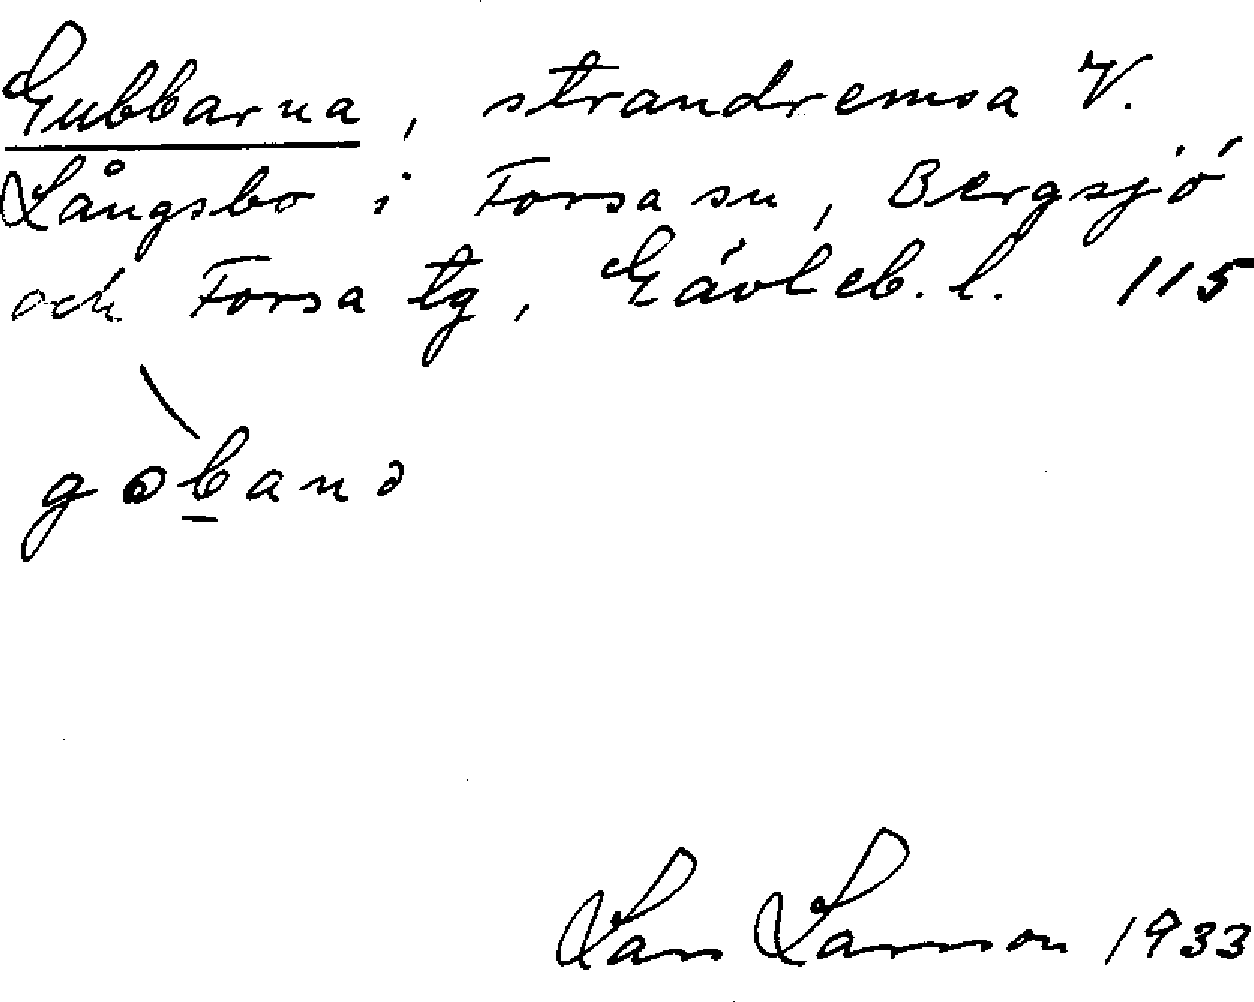 Gubbarna, strandremsa V.
Långsbo i Forsa sn, Bergsjö
och Forsa tg, Gävleb. l. 115
gɔb̲anə
Lars Larsson 1933